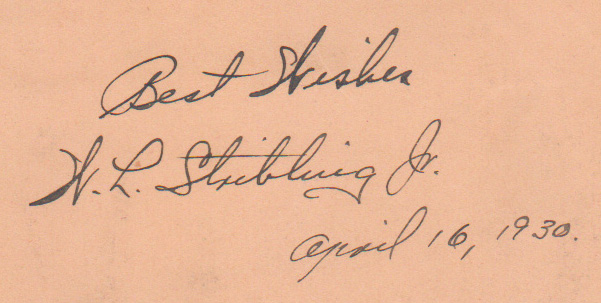 Best Wishes
W. L. Stribling Jr.
April 16, 1930.